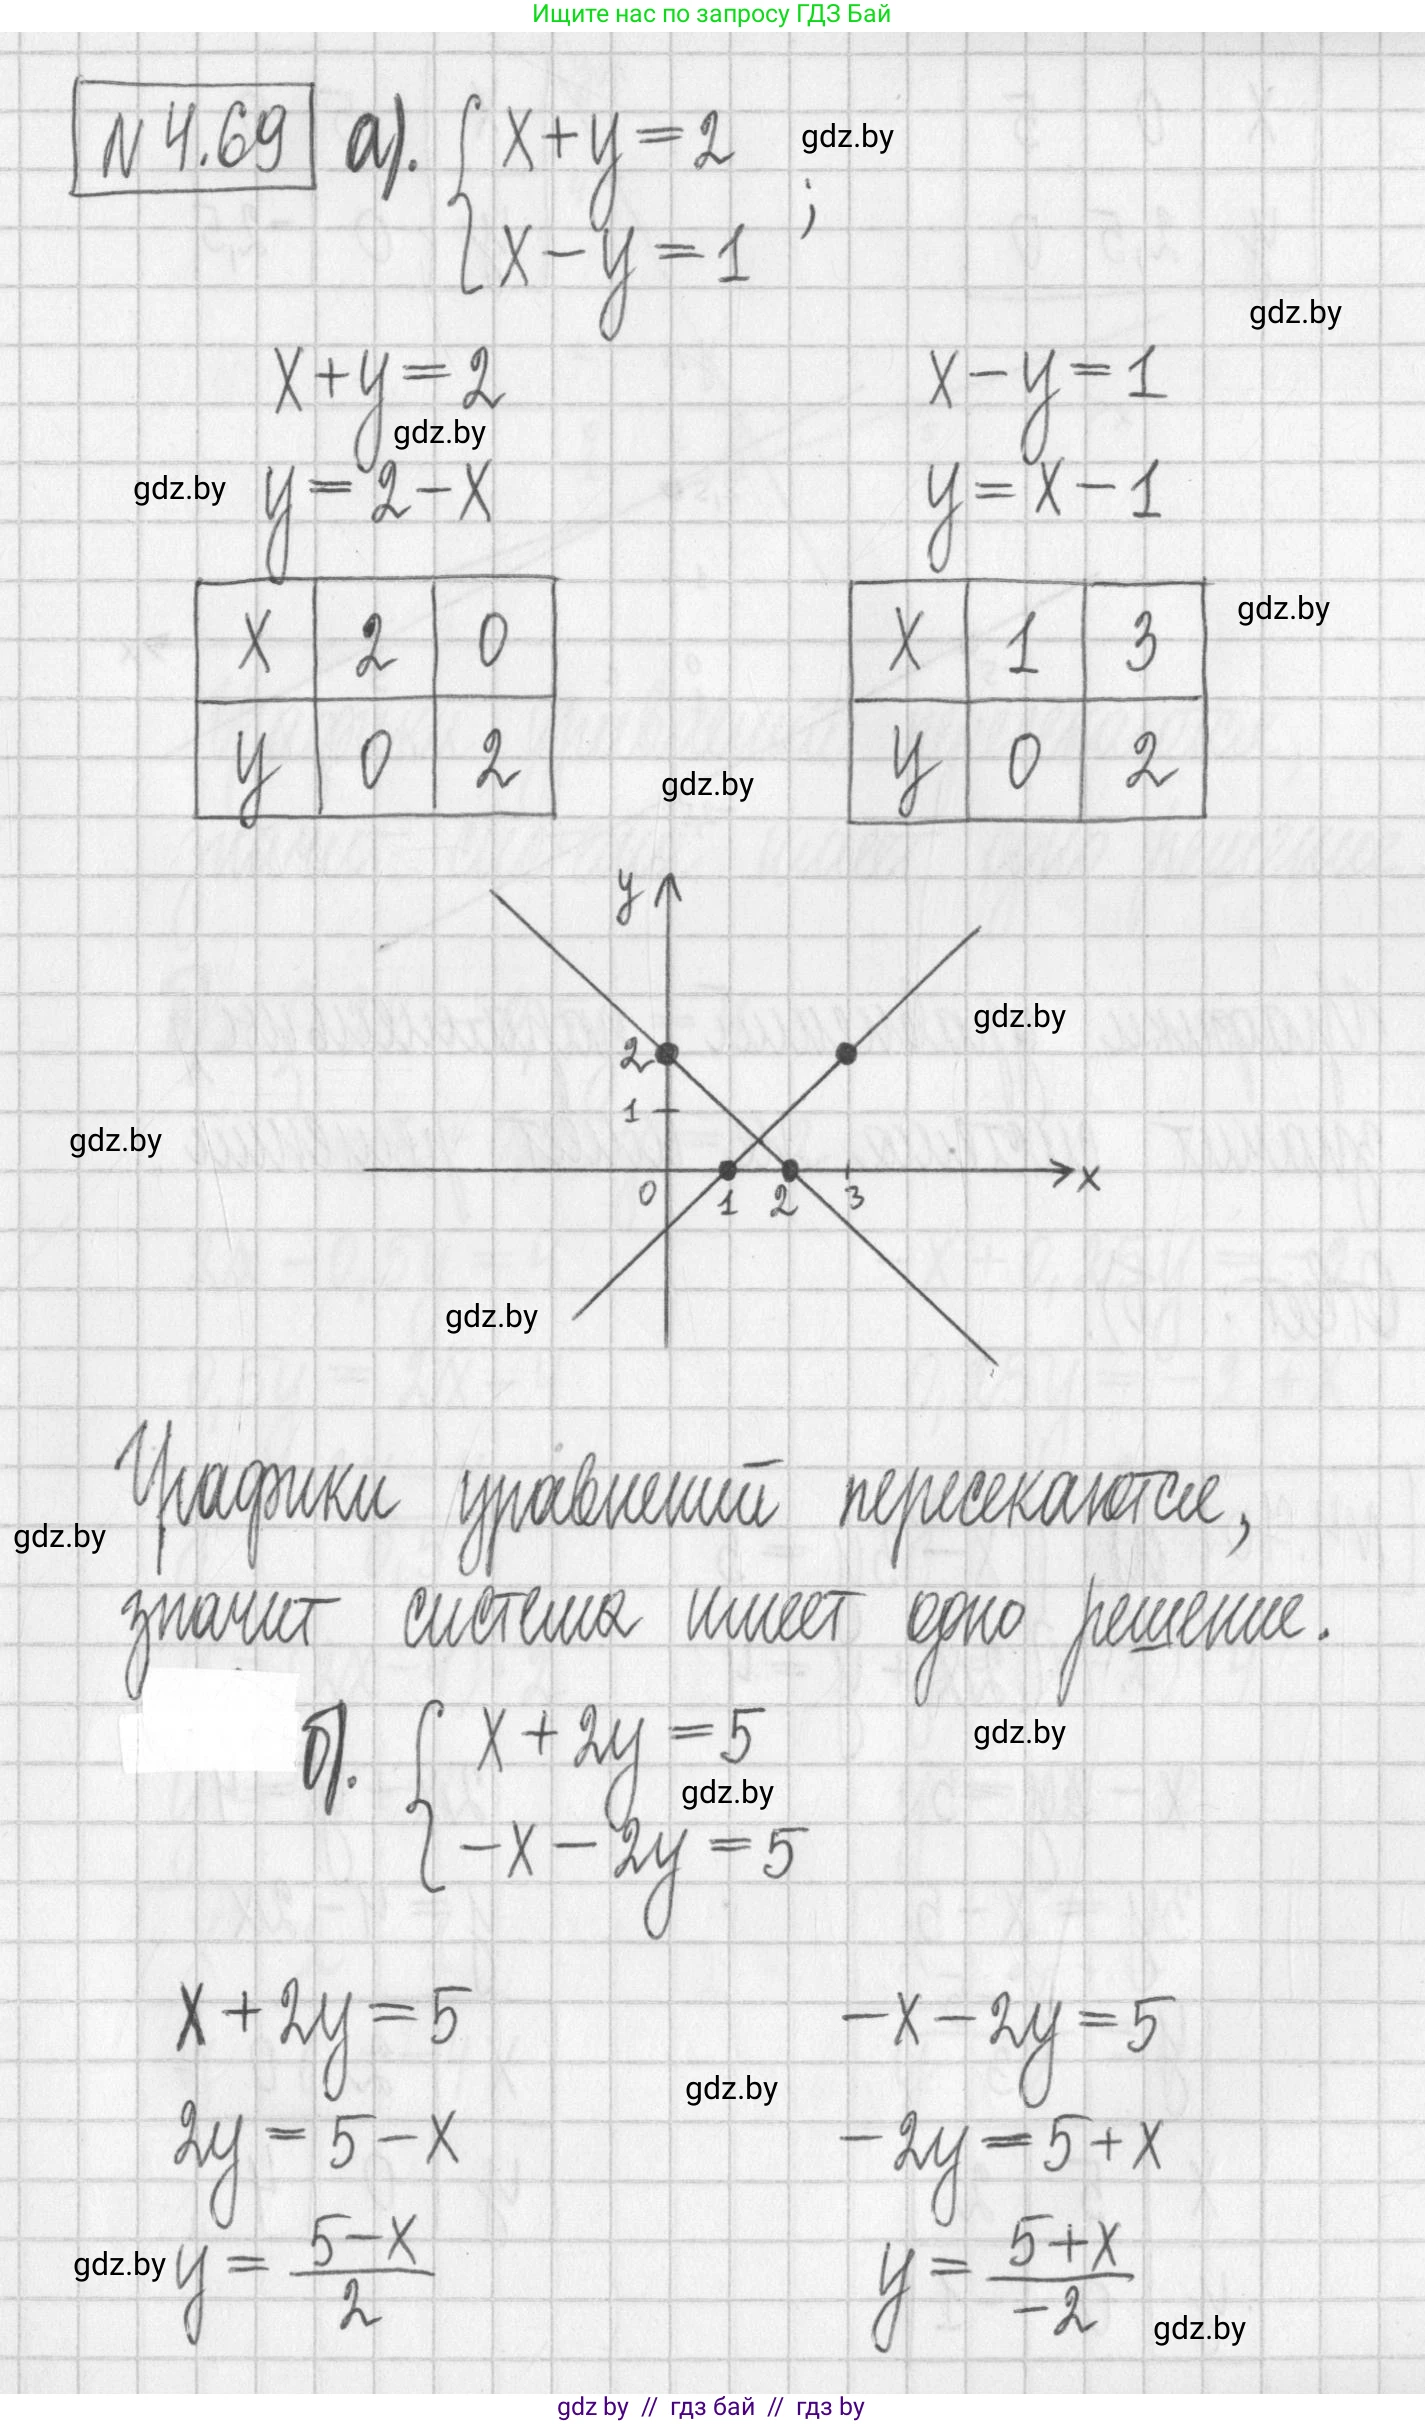 Ищите нас по запросу ГДЗ Бай
N 4.69 а). { x + y = 2 gdz.by
x − y = 1 ;
gdz.by
x + y = 2 x − y = 1
gdz.by
gdz.by y = 2 − x y = x − 1
x 2 0 x 1 3 gdz.by
y 0 2 y 0 2
gdz.by
y
gdz.by
2
1
gdz.by
x
0 1 2 3
gdz.by
Графики уравнений пересекаются,
gdz.by
значит система имеет одно решение.
б). { x + 2y = 5 gdz.by
gdz.by
−x − 2y = 5
x + 2y = 5 −x − 2y = 5
gdz.by
2y = 5 − x −2y = 5 + x
gdz.by y = 5−x / 2 y = 5+x / −2
gdz.by
gdz by // гдз бай // гдз by